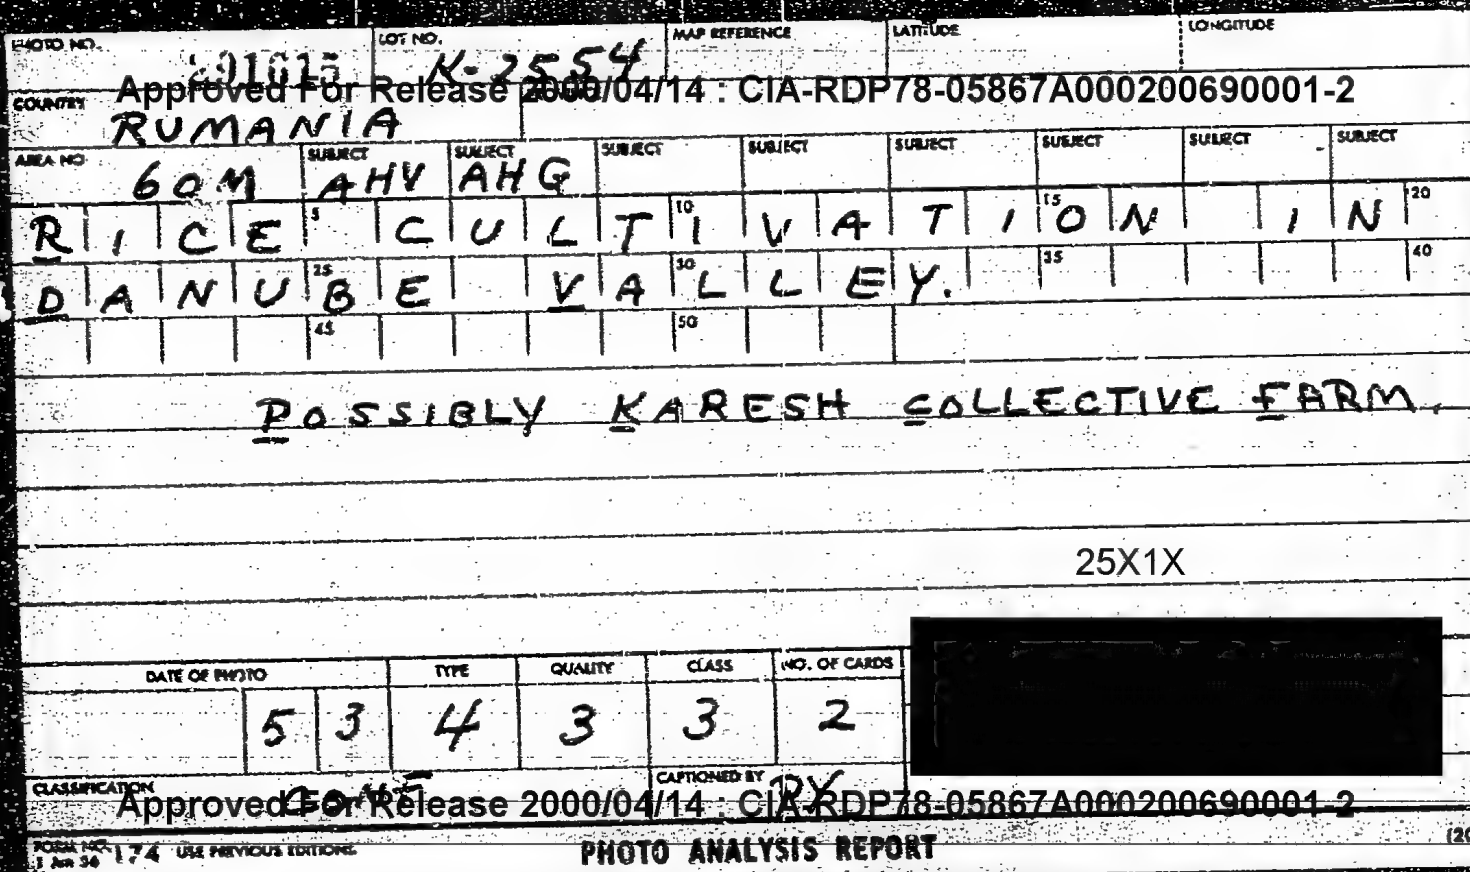 PHOTO NO. LOT NO. MAP REFERENCE LATITUDE LONGITUDE
K-2554
Approved For Release 2000/04/14 : CIA-RDP78-05867A000200690001-2
COUNTRY
RUMANIA
AREA NO SUBJECT SUBJECT SUBJECT SUBJECT SUBJECT SUBJECT SUBJECT SUBJECT
60M AHV AHG
5 10 15 20
RICE CULTIVATION IN
25 30 35 40
DANUBE VALLEY.
45 50
POSSIBLY KARESH COLLECTIVE FARM.
25X1X
DATE OF PHOTO TYPE QUALITY CLASS NO. OF CARDS
53 4 3 3 2
CLASSIFICATION CAPTIONED BY
Approved For Release 2000/04/14 : CIA-RDP78-05867A000200690001-2
FORM NO. 174 USE PREVIOUS EDITIONS
1 Jun 56
PHOTO ANALYSIS REPORT
(20